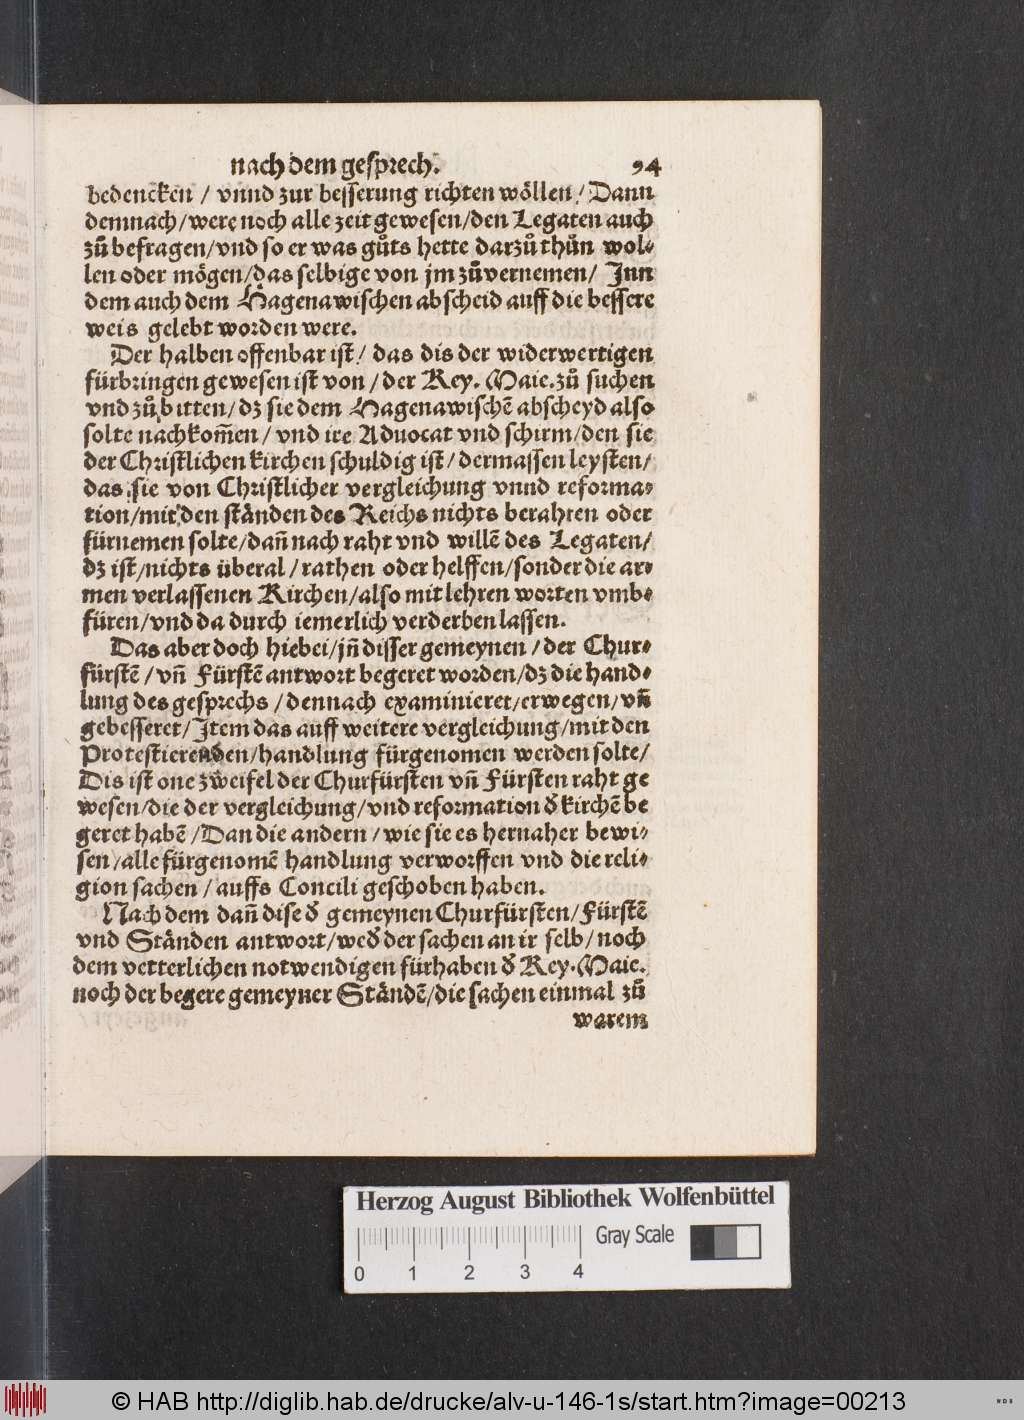 nach dem gesprech. 94
bedencken / vnnd zur besserung richten wöllen / Dann
demnach/were noch alle zeit gewesen/den Legaten auch
zuͦ befragen/vnd so er was guͦts hette darzuͦ thuͦn wol⸗
len oder mögen/das selbige von jm zuͦvernemen/ Inn
dem auch dem Hagenawischen abscheid auff die bessere
weis gelebt worden were.
Der halben offenbar ist/ das dis der widerwertigen
fürbringen gewesen ist von / der Key. Maie. zuͦ suchen
vnd zuͦ bitten/ dz sie dem Hagenawischē abscheyd also
solte nachkom̄en / vnd ire Aduocat vnd schirm/den sie
der Christlichen kirchen schuldig ist/ dermassen leysten/
das sie von Christlicher vergleichung vnnd reforma⸗
tion/mit den ständen des Reichs nichts berahten oder
fürnemen solte/dan̄ nach raht vnd willē des Legaten/
dz ist/nichts überal / rathen oder helffen/sonder die ar⸗
men verlassenen Kirchen/also mit lehren worten vmbe⸗
füren/vnd da durch iemerlich verderben lassen.
Das aber doch hiebei/jn̄ disser gemeynen / der Chur⸗
fürstē / vn̄ Fürstē antwort begeret worden/dz die hand⸗
lung des gesprechs / dennach examinieret/erwegen/vn̄
gebesseret/Item das auff weitere vergleichung/mit den
Protestierenden/handlung fürgenomen werden solte/
Dis ist one zweifel der Churfürsten vn̄ Fürsten raht ge
wesen/die der vergleichung/vnd reformation d̄ kirchē be
geret habē /Dan die andern / wie sie es hernaher bewi⸗
sen/alle fürgenomē handlung verworffen vnd die reli⸗
gion sachen / auffs Concili geschoben haben.
Nach dem dan̄ dise d̄ gemeynen Churfürsten/Fürstē
vnd Ständen antwort/wed̄ der sachen an ir selb/noch
dem vetterlichen notwendigen fürhaben d̄ Key. Maie.
noch der begere gemeyner Ständē/die sachen einmal zuͦ
warem
Herzog August Bibliothek Wolfenbüttel
Gray Scale
0 1 2 3 4
© HAB http://diglib.hab.de/drucke/alv-u-146-1s/start.htm?image=00213